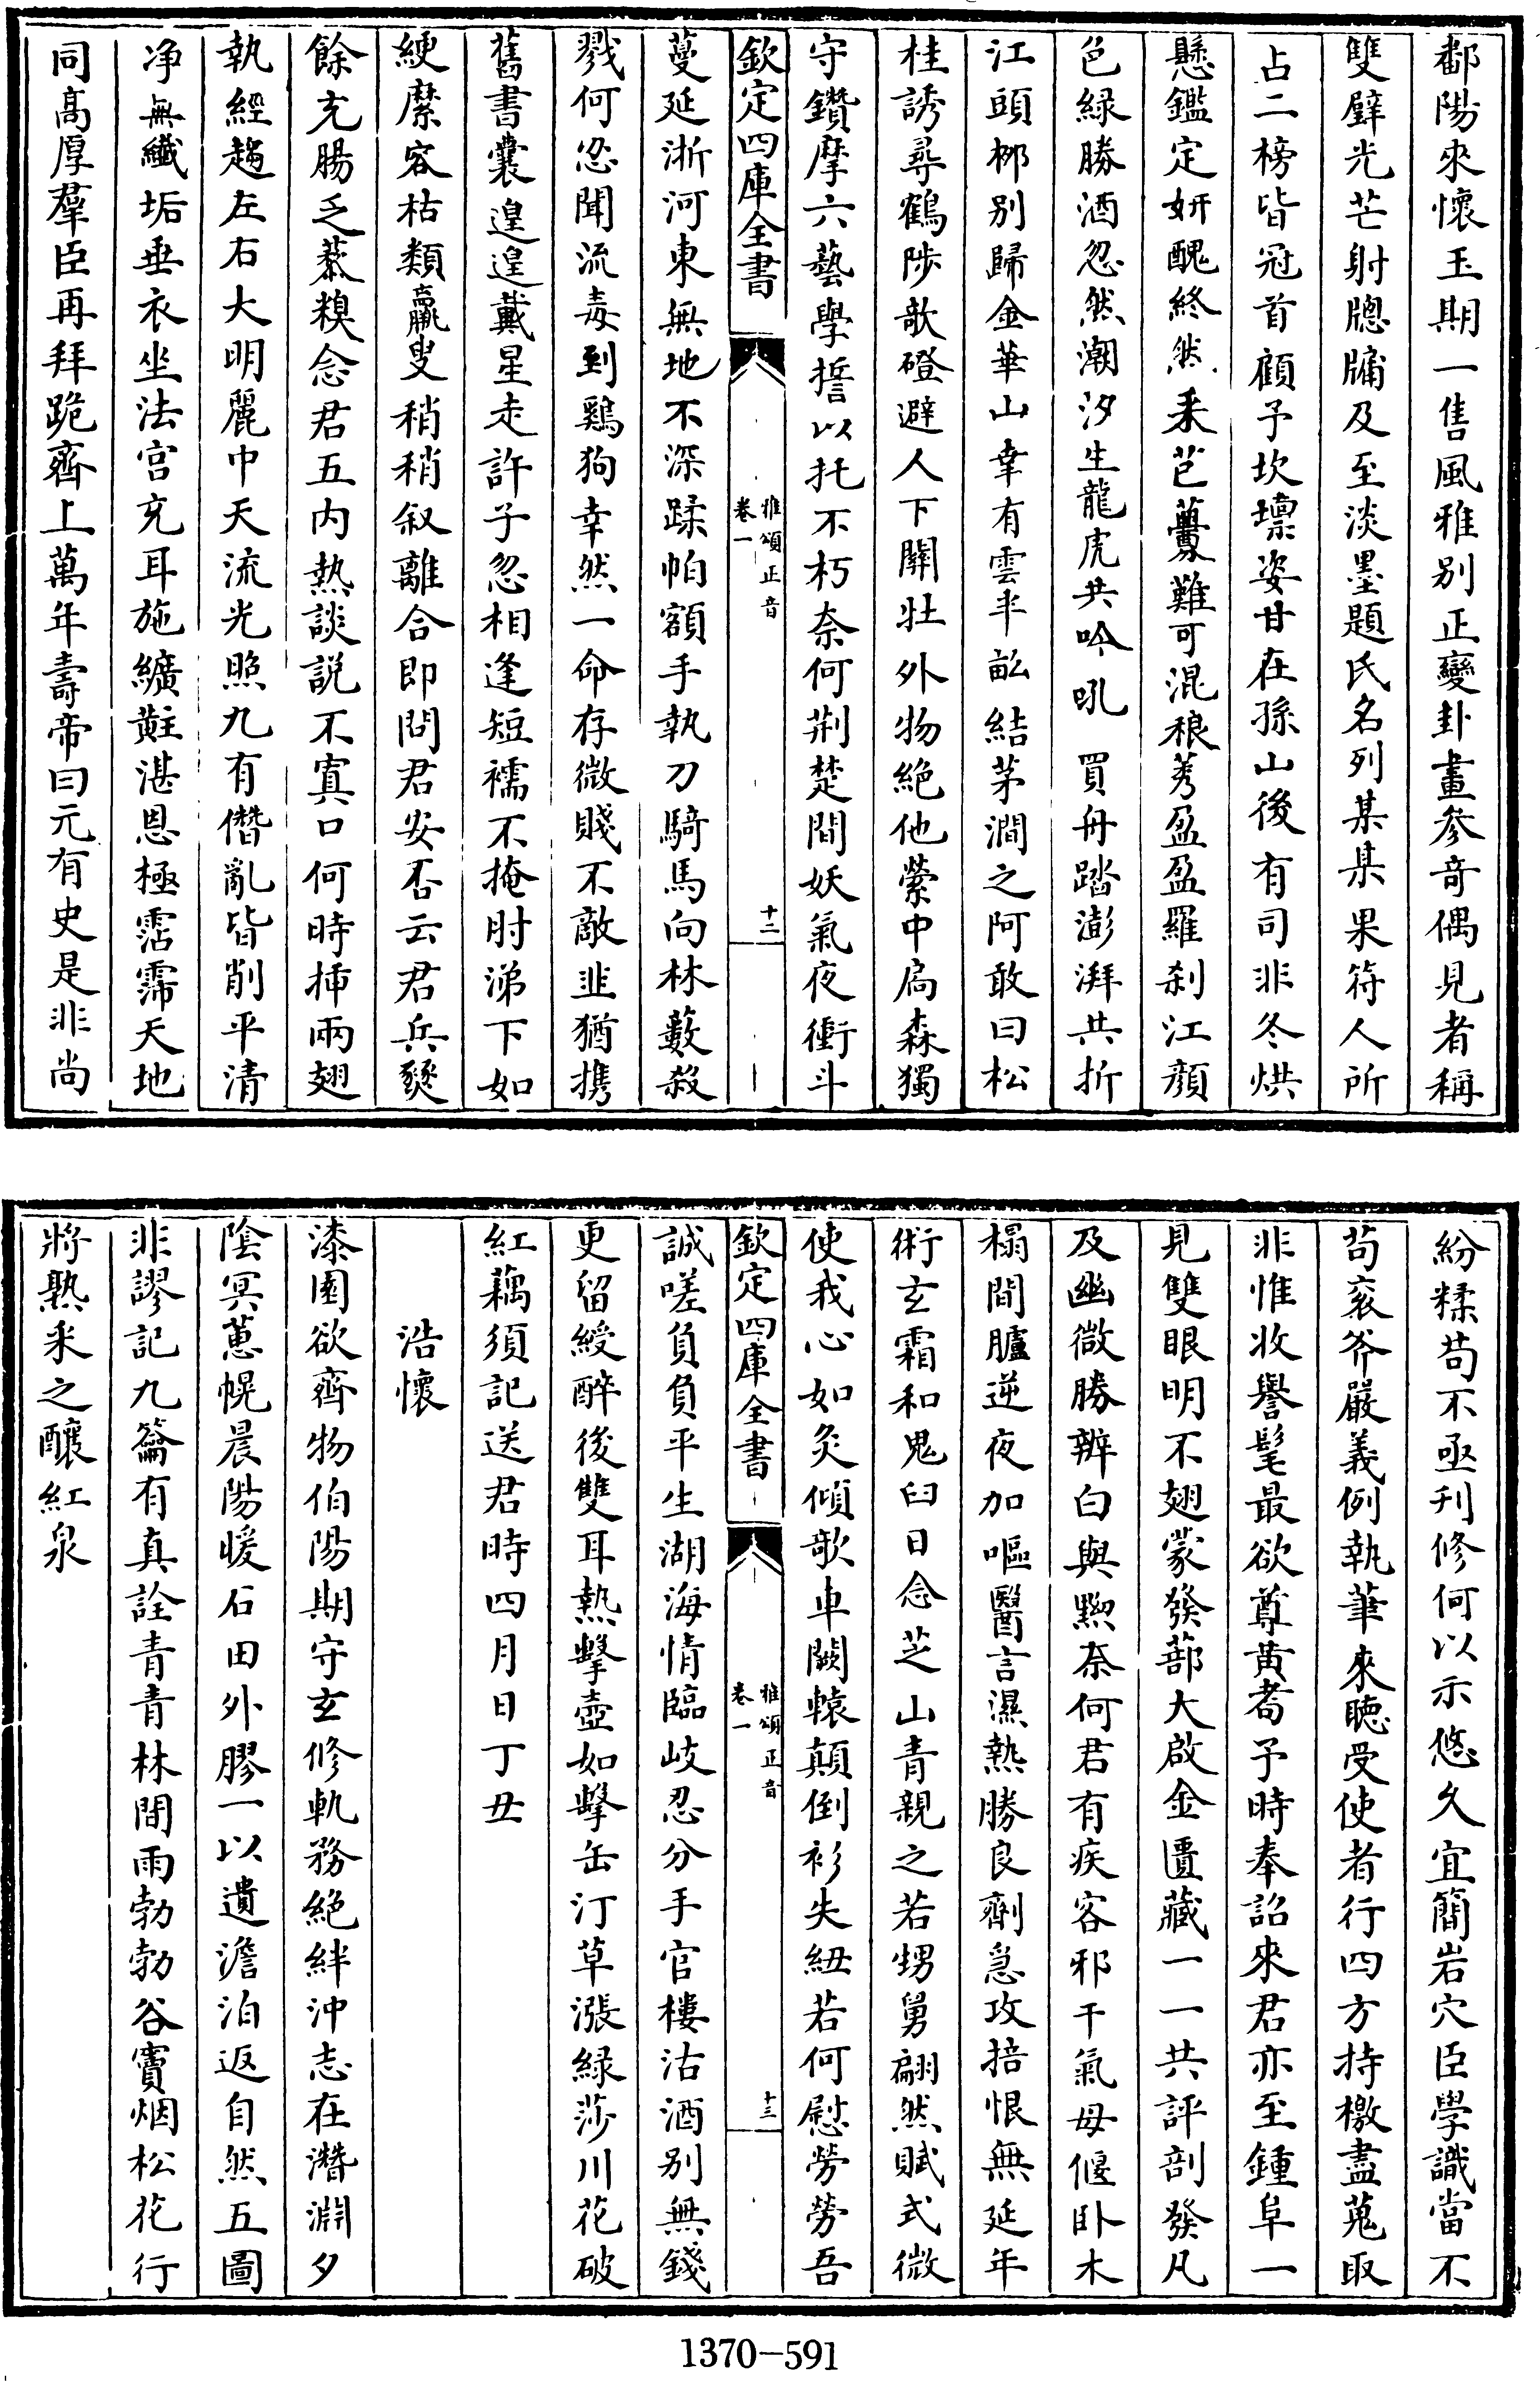 鄱陽來懷玉期一售風雅别正變卦畫參竒偶見者稱
雙璧光芒射牕牖及至淡墨題氏名列某某果符人所
占二榜皆冠首顧予坎壈姿甘在孫山後有司非冬烘
懸鑑定妍醜終然釆芑薁難可混稂莠盈盈羅刹江顔
色緑勝酒忽然潮汐生龍虎共吟吼買舟踏澎湃共折
江頭栁别歸金華山幸有雲半畝結茅澗之阿敢曰松
桂誘尋鶴陟欹磴避人下關牡外物絶他縈中扃森獨
守鑽摩六藝學誓以托不朽奈何荆楚間妖氣夜衝斗
欽定四庫全書
雅頌正音
卷一
十二
蔓延浙河東無地不深蹂帕額手執刀騎馬向林藪殺
戮何忍聞流毒到鷄狗幸然一命存微賤不敵韭猶攜
舊書囊遑遑戴星走許子忽相逢短襦不掩肘涕下如
綆縻容枯類羸叟稍稍叙離合即問君安否云君兵燹
餘充腸乏黍糗念君五内熱談説不寘口何時揷兩翅
執經趨左右大明麗中天流光照九有僭亂皆削平清
净無纖垢垂衣坐法宫充耳施纊黈湛恩極霑霈天地
同高厚羣臣再拜跪齊上萬年壽帝曰元有史是非尚
紛糅苟不亟刋修何以示悠久宜簡岩穴臣學識當不
苟衮斧嚴義例執筆來聴受使者行四方持檄盡蒐取
非惟收譽髦最欲尊黄耈予時奉詔來君亦至鍾阜一
見雙眼明不翅蒙發蔀大啟金匱藏一一共評剖發凡
及幽微勝辨白與黝奈何君有疾客邪干氣母偃卧木
榻間臚逆夜加嘔醫言濕熱勝良劑急攻掊恨無延年
術玄霜和鬼臼日念芝山青親之若甥舅翩然賦式微
使我心如灸傾欹車闕轅顛倒衫失紐若何慰勞勞吾
欽定四庫全書
雅頌正音
卷一
十三
誠嗟負負平生湖海情臨岐忍分手官樓沽酒别無錢
更留綬醉後雙耳熱擊壺如擊缶汀草漲緑莎川花破
紅藕須記送君時四月日丁丑
浩懷
漆園欲齊物伯陽期守玄修軌務絶絆沖志在濳淵夕
陰冥蕙幌晨陽暖石田外膠一以遺澹泊返自然五圖
非謬記九籥有真詮青青林間雨勃勃谷竇烟松花行
將熟釆之釀紅泉
1370-591